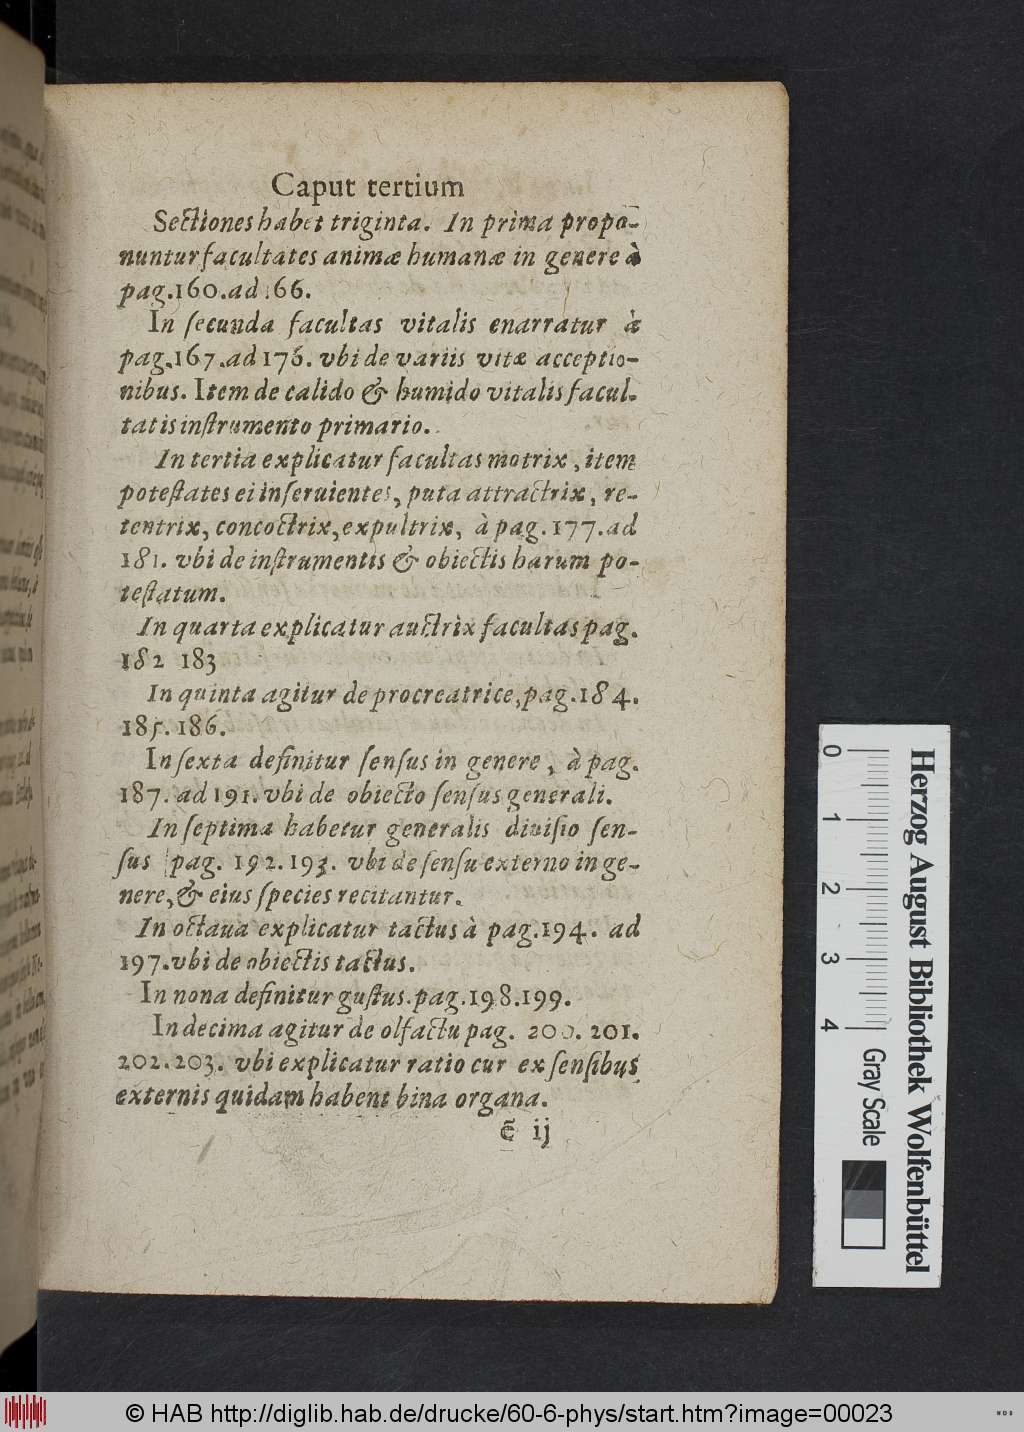 Caput tertium
Sectiones habet triginta. In prima propo-
nuntur facultates animæ humanæ in genere à
pag.160.ad 166.
In ſecunda facultas vitalis enarratur à
pag.167.ad 176. vbi de variis vitæ acceptio-
nibus. Item de calido & humido vitalis facul-
tatis inſtrumento primario.
In tertia explicatur facultas motrix, item
poteſtates ei inſeruientes, puta attractrix, re-
tentrix, concoctrix, expultrix, à pag.177.ad
181. vbi de inſtrumentis & obiectis harum po-
teſtatum.
In quarta explicatur auctrix facultas pag.
182 183
In quinta agitur de procreatrice, pag.184.
185.186.
In ſexta definitur ſenſus in genere, à pag.
187. ad 191. vbi de obiecto ſenſus generali.
In ſeptima habetur generalis diuiſio ſen-
ſus pag. 192.193. vbi de ſenſu externo in ge-
nere, & eius ſpecies recitantur.
In octaua explicatur tactus à pag.194. ad
197.vbi de obiectis tactus.
In nona definitur guſtus.pag.198.199.
In decima agitur de olfactu pag. 200. 201.
202.203. vbi explicatur ratio cur ex ſenſibus
externis quidam habent bina organa.
ẽ ij
0 1 2 3 4
Gray Scale
Herzog August Bibliothek Wolfenbüttel
© HAB http://diglib.hab.de/drucke/60-6-phys/start.htm?image=00023